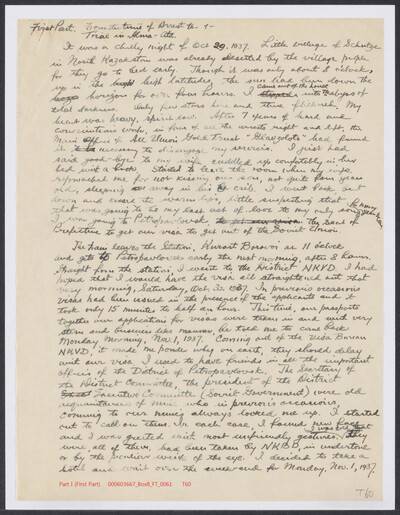 First Part. From the time of Arrest to -
Trial in Alma-Ata
It was a chilly night of Oct 29, 1937. Little village of Schutze
in North Kazakstan was already deserted by the village people
for they go to bed early. Though it was only about 8 o'clock,
up in the high latitudes, the sun had been down the
horizon for over four hours. I came out of the house into the abyss of
total darkness. Only few stars here and there flickered. My
heart was heavy, spirit low. After 7 years of hard and
conscientious work, in four of all the
Main Office of All Union Gold Trust "Glavzoloto" had found
it necessary to my service. I just had
said good-bye to my wife cuddled up comfortably in her
bed with a book. Started to leave the room when my wife
reproached me for not kissing our son, not quite four years
old, sleeping away in his crib. I went back bent
down and kissed warm lips, little suspecting that
this was going to be my last act of love to my only son
I was going to Petropavlovsk the Seat of
Prefecture to get our visa to get out of the Soviet Union.
The train leaves the Station, Kurort Borovoi at 11 o'clock
and gets to Petropavlovsk early the next morning, after 8 hours.
Straight from the station, I went to the District NKVD. I had
hoped that I would have the visa all straightened out that
very morning, Saturday, Oct. 30, 1937. In previous occasions
visas had been issued in the presence of the applicants and it
took only 15 minutes to half an hour. This time, our passports
together with application for visas were taken in and with very
stern and business like manner, he told me to come back
Monday morning, Nov. 1, 1937. Coming out of the Visa Bureau
NKVD, it made me ponder why on earth, they should delay
with our visa. I used to have friends in all the important
offices of the District of Petropavlovsk. The Secretary of
the District Committee, the president of the District
Executive Committee (Soviet Government) were old
acquaintances of mine who in previous occasions,
coming to our mine always looked me up. I started
out to call on them. In each case, I found new faces
and I was greeted with most unfriendly gestures. I was told that they
were all of them, had been taken by NKVD, in undertone
or by the peculiar wink of the eye. I decided to take a
hotel and wait over the weekend for Monday, Nov. 1, 1937.
Part I (First Part) 000603667_Box8_FT_0061 T60
T60